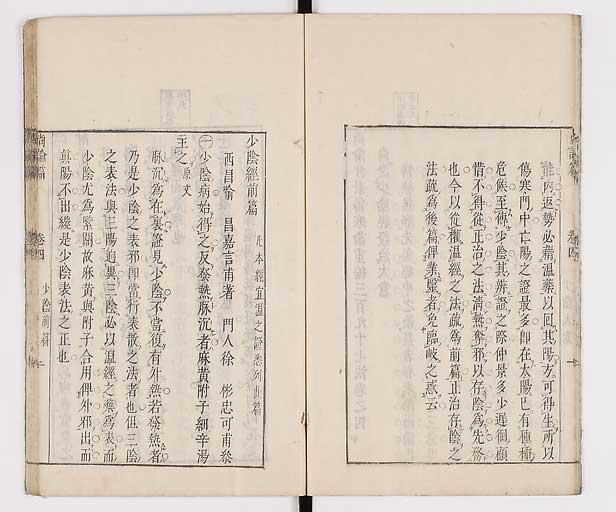 能內返勢必藉溫藥以回其陽方可得生所以
傷寒門中亡陽之證最多即在太陽已有種種
危候至傳少陰其辨證之際仲景多少遲徊顧
惜不得從正治之法清熱奪邪以存陰為先務
也今以從權溫經之法疏為前篇正治存陰之
法疏為後篇俾業醫者免臨岐之惑云
少陰經前篇 凡本經宜溫之證悉列此篇
西昌喻 昌嘉言甫著 門人徐 彬忠可甫叅
㊀少陰病始得之反發熱脉沉者麻黃附子細辛湯
主之 原文
脉沉為在裏證見少陰不當復有外熱若發熱者
乃是少陰之表邪即當行表散之法者也但三陰
之表法與三陽迥異三陰必以溫經之藥為表而
少陰尤為緊關故麻黃與附子合用俾外邪出而
真陽不出纔是少陰表法之正也
尚論篇 卷四 少陰前篇 二